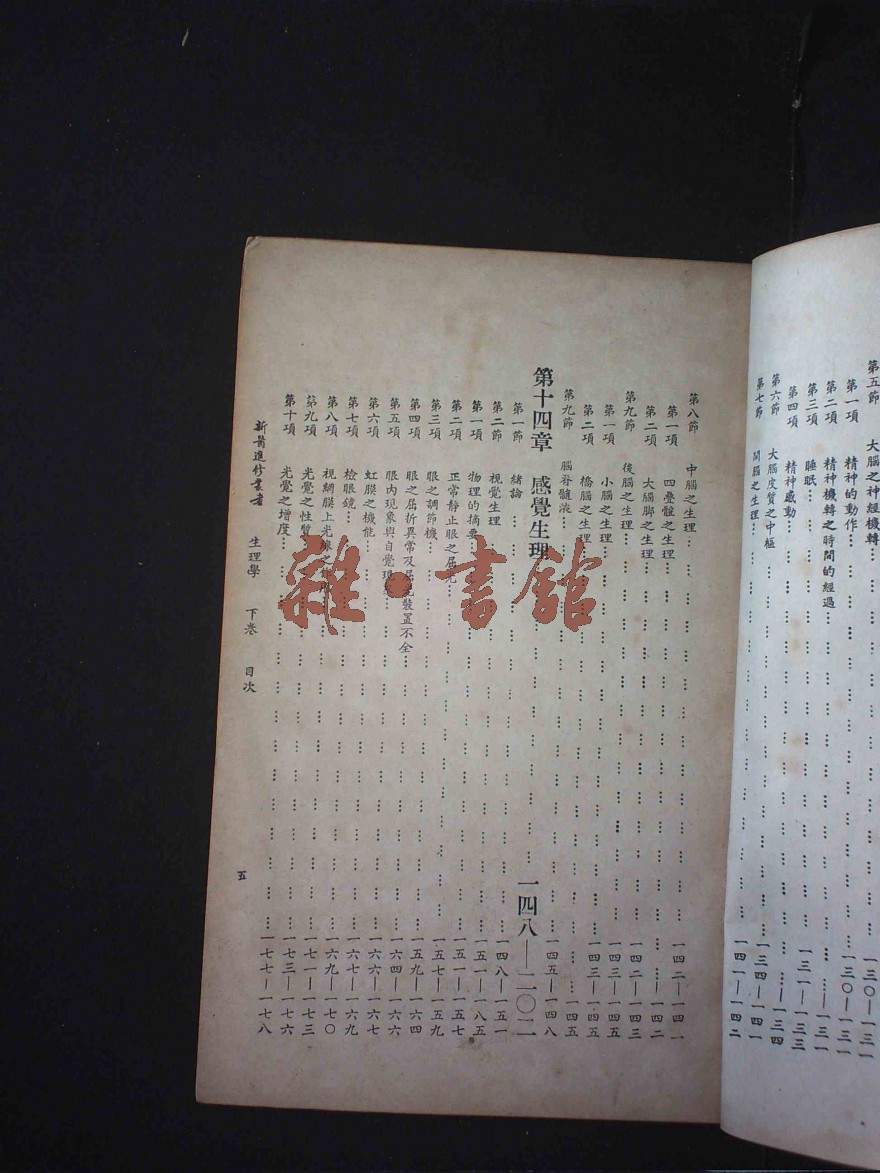 第五節　大腦之神經機轉……一三〇—一三一
第一項　精神的動作……一三〇—一三一
第二項　精神機轉之時間的經過……一三一
第三項　睡眠……一三一—一三三
第四項　精神感動……一三四
第六節　大腦皮質之中樞……一三四—一四一
第七節　間腦之生理……一四一—一四二
第八節　中腦之生理……一四二—一四一
第一項　四疊體之生理……一四二
第二項　大腦脚之生理……一四二—一四三
第九節　後腦之生理……一四三—一四五
第一項　小腦之生理……一四三—一四五
第二項　橋腦之生理……一四五
第九節　腦脊髓液……一四五—一四八
第十四章　感覺生理……一四八—二〇二
第一節　緒論……一四八—一五一
第二節　視覺生理……一五一—一八五
第一項　物理的摘要……一五一—一五七
第二項　正常靜止眼之屈光……一五七—一五九
第三項　眼之調節機……一五九—一六四
第四項　眼之屈折異常及屈光裝置不全……一六四—一六六
第五項　眼內現象與自覺現象……一六六—一六七
第六項　虹膜之機能……一六七—一六九
第七項　檢眼鏡……一六九—一七〇
第八項　視網膜上光線之……一七一—一七三
第九項　光覺之性質……一七三—一七六
第十項　光覺之增度……一七七—一七八
新醫進修叢書　生理學　下卷　目次
五
雜·書館